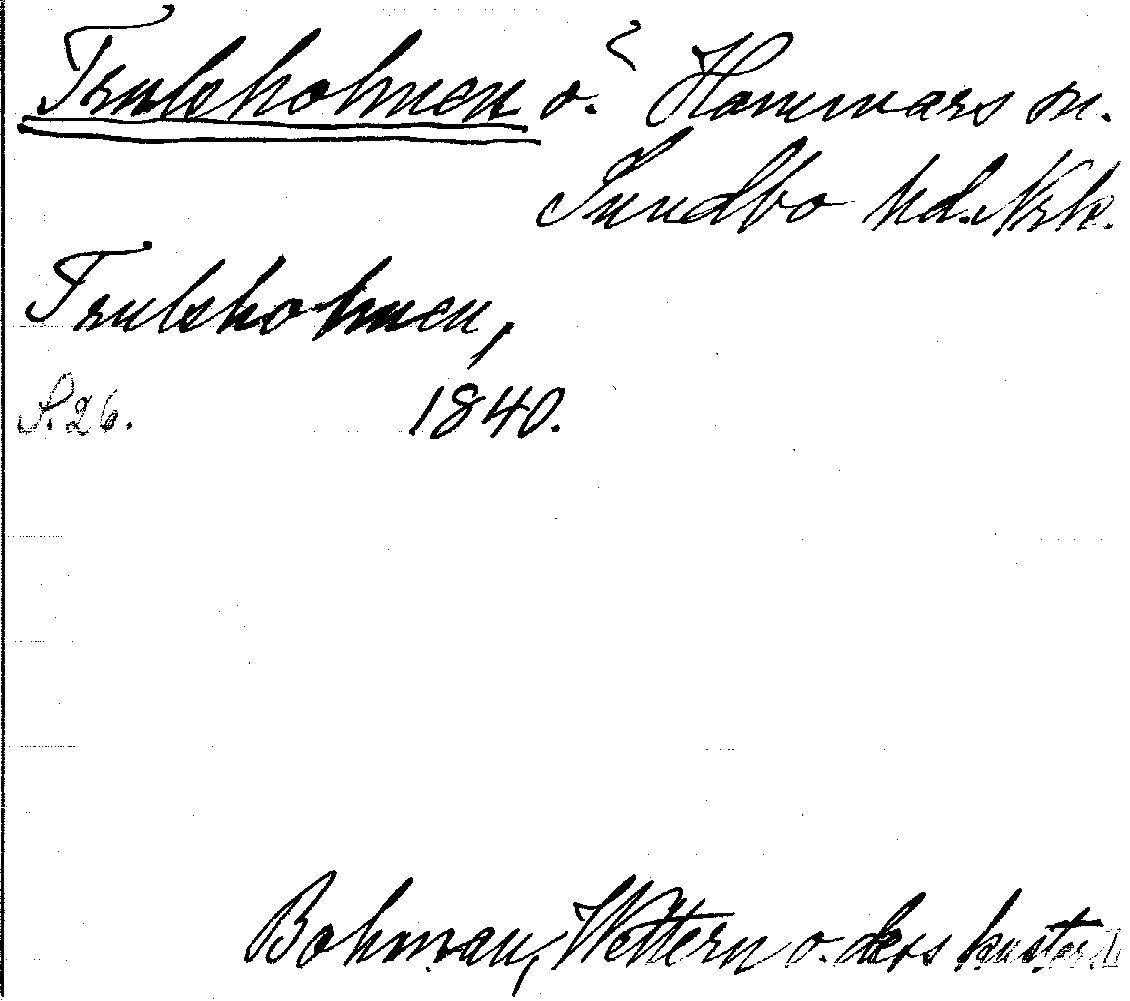 Trulsholmen ö. Hammars sn.
Sundbo hd. Nrk.
Trulsholmen,
S. 26. 1840.
Bohman, Wettern o. dess kuster II